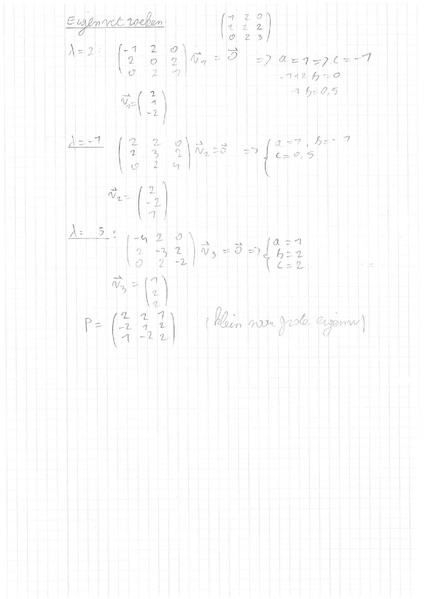 Eigenvectoren (1 2 0; 2 2 2; 0 2 3)
λ=2: (-1 2 0; 2 0 2; 0 2 1) v⃗₁ = 0⃗ => a=1 => c=-1
-1+2b=0
b=0,5
v⃗₁= (2; 1; -2)
λ=-1 (2 2 0; 2 3 2; 0 2 4) v⃗₂=0⃗ => { a=1, b=-1
c=0,5
v⃗₂= (2; -2; 1)
λ= 5: (-4 2 0; 2 -3 2; 0 2 -2) v⃗₃ = 0⃗ => { a=1
b=2
c=2
v⃗₃= (1; 2; 2)
P= (2 2 1; -2 1 2; 1 -2 2) (klein naar grote eigenw)